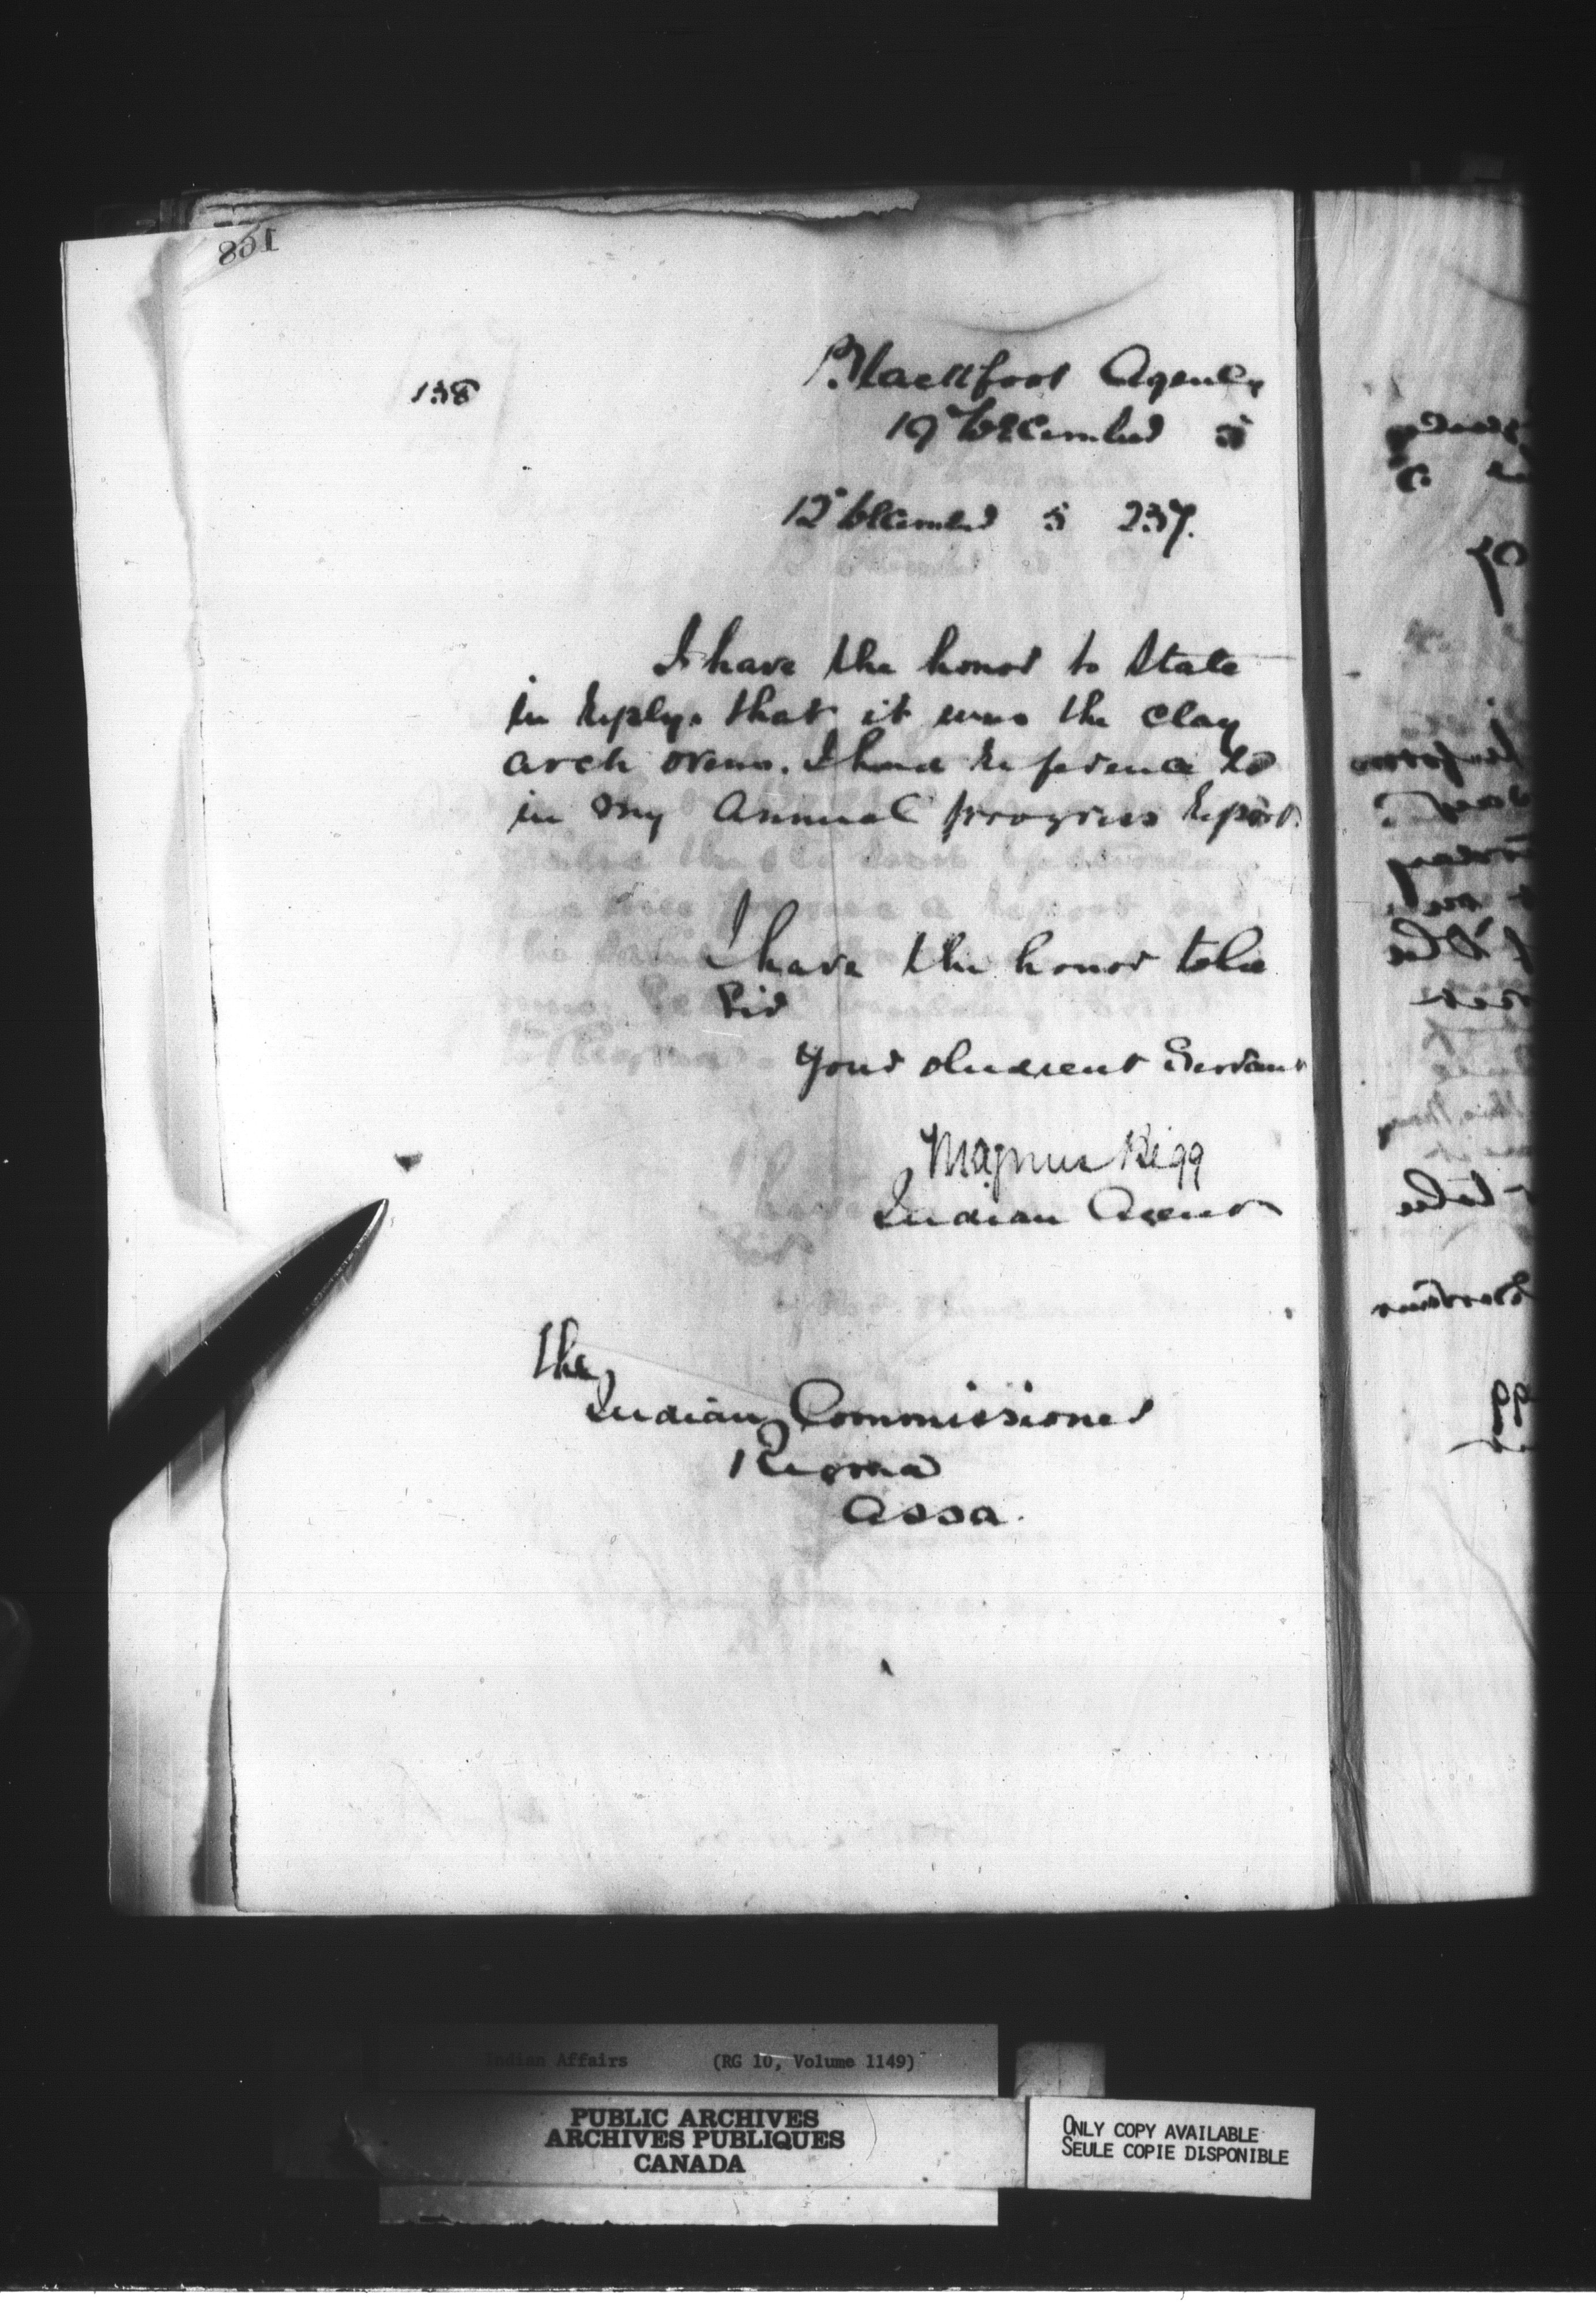 168
138
Blackfoot Agency
19 December 5
12 December 5 237.
I have the honor to state
in reply, that it was the clay
arch ovens. I had reference to
in my Annual progress report.
I have the honor to be
Sir
Your obedient Servant
Magnus Begg
Indian Agent
The
Indian Commissioner
Regina
Assa.
Indian Affairs (RG 10, Volume 1149)
PUBLIC ARCHIVES
ARCHIVES PUBLIQUES
CANADA
ONLY COPY AVAILABLE
SEULE COPIE DISPONIBLE